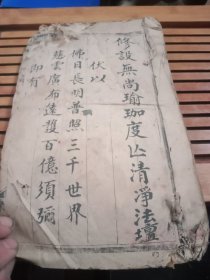 修設無尚瑜珈度亾清凈法壇
伏以
佛日長明普照三千世界
慈雲廣布遠護百億須彌
即有